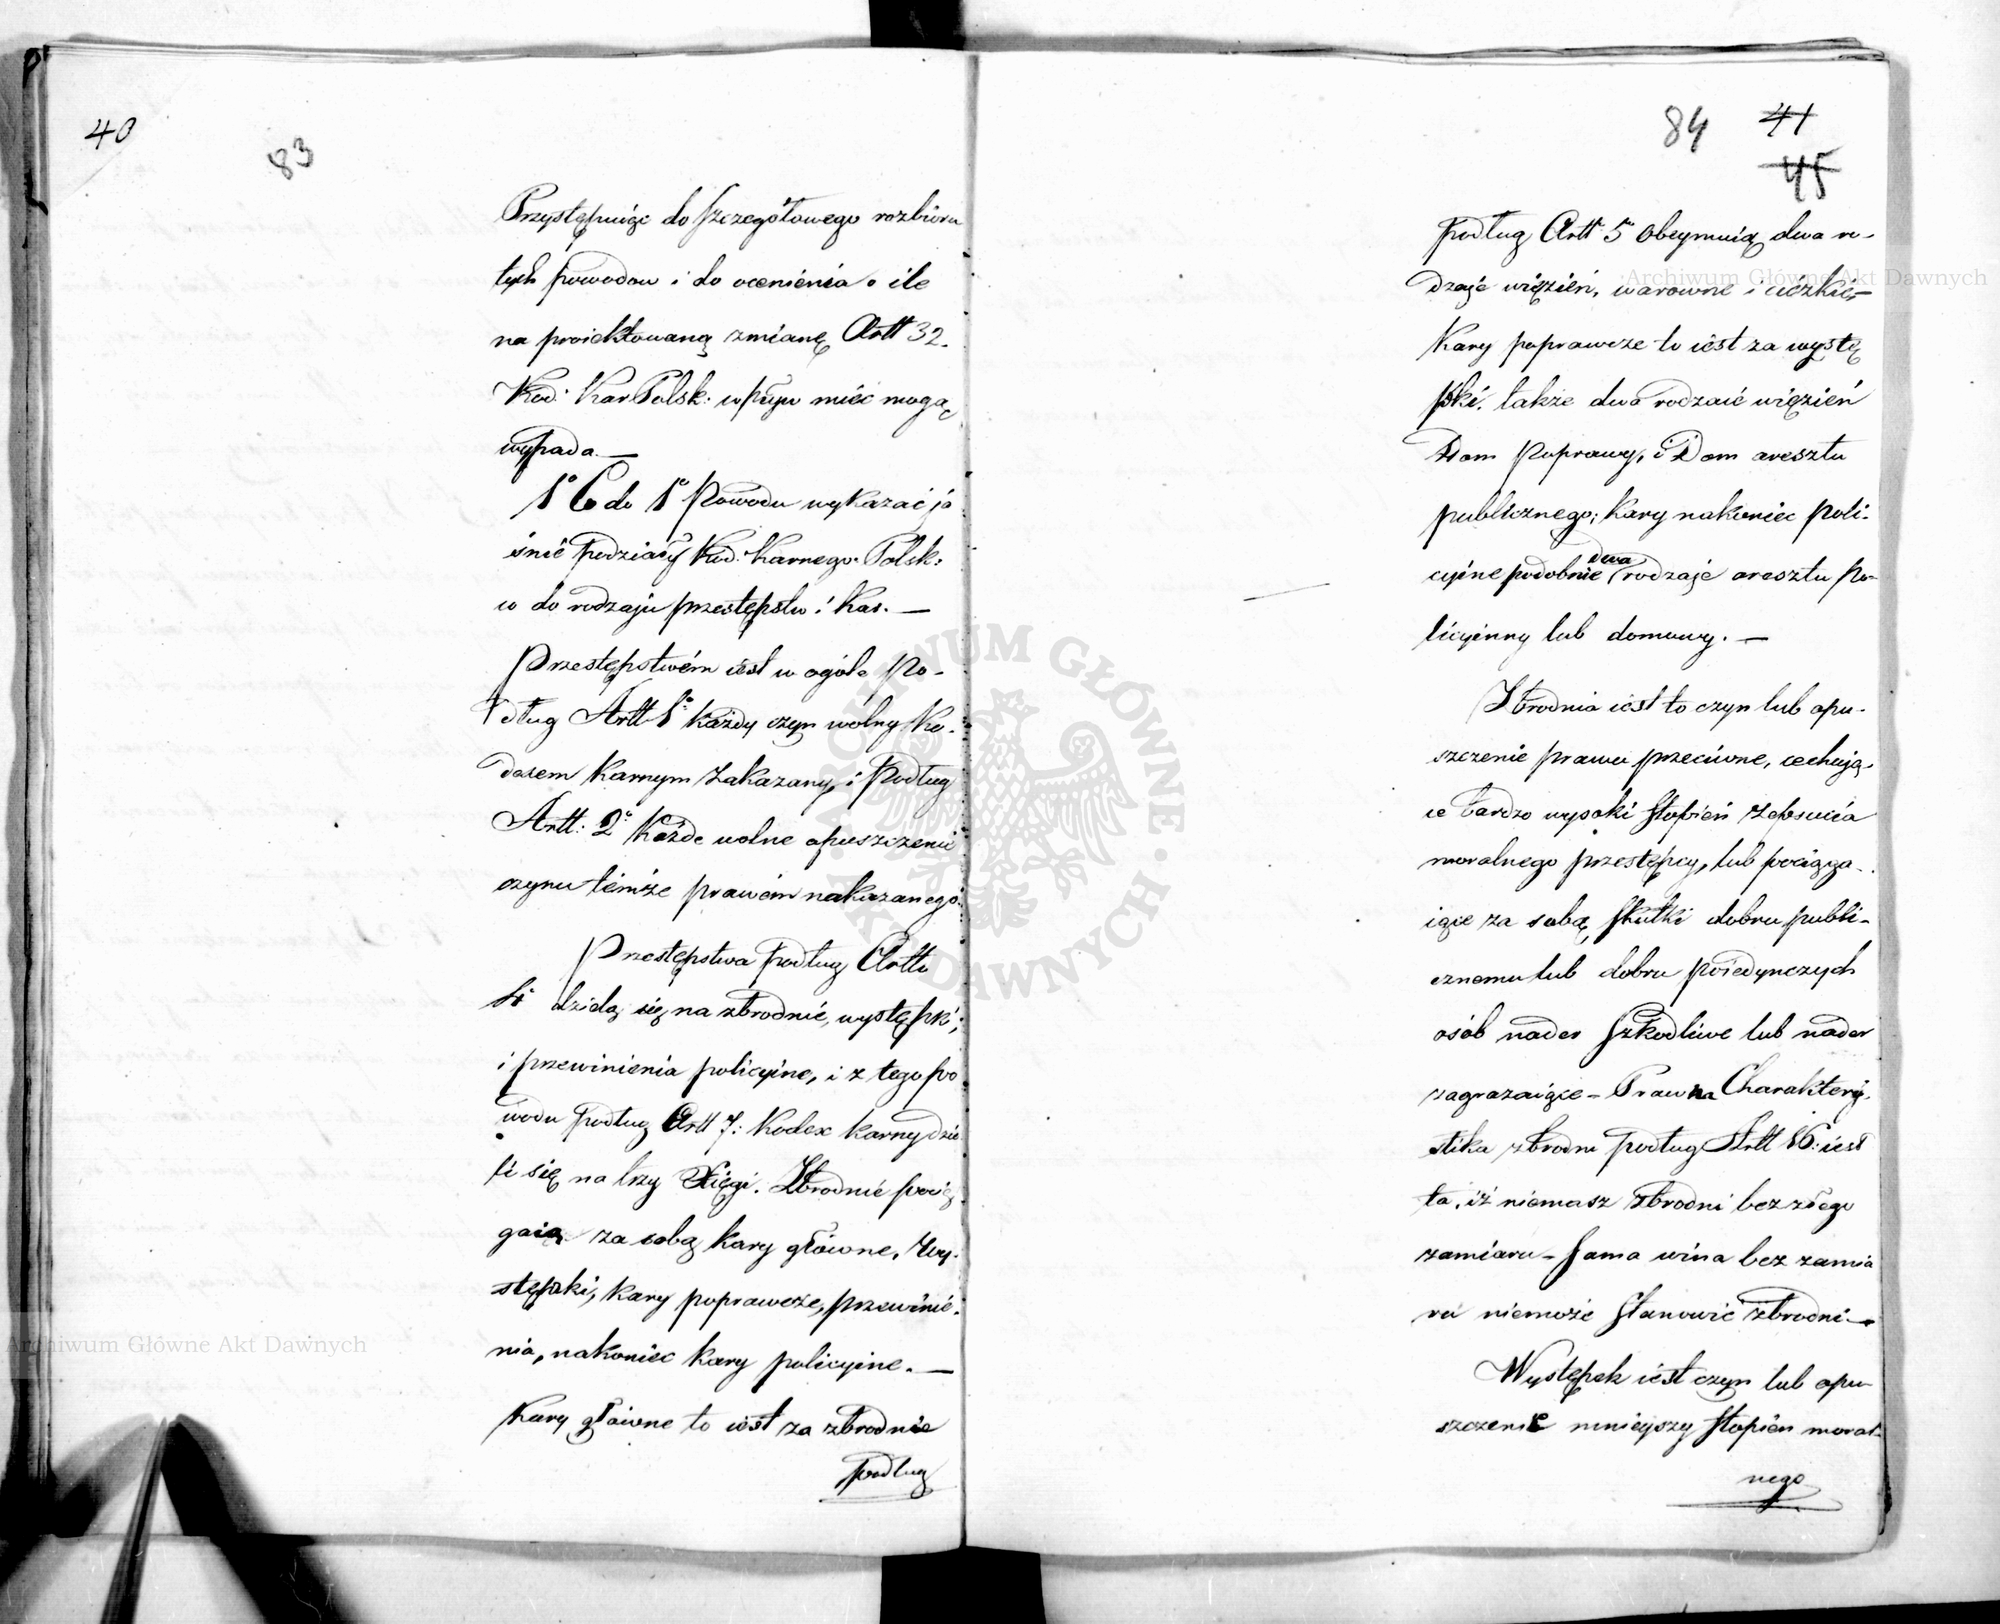 40
83
Przystępuiąc do szczegółowego rozbioru
tych powodow i do ocenienia o ile
na proiektowaną zmianę Artt 32.
Kod: Kar Polsk: wpływ mieć mogą
wypada. —
1° Co do 1° Powodu wykazać ja
śnie podziały Kod. Karnego Polsk:
co do rodzaju przestępstw i Kar. —
Przestępstwem iest w ogóle Po-
dług Artt 1° każdy czyn wolny Ko-
dexem Karnym zakazany, i Podług
Artt: 2° Każde wolne opuszczenie
czynu témże prawém nakazanego.
Przestępstwa podług Arttu
4° dzielą się na zbrodnie, występki,
i przewinienia policyine, i z tego po
wodu podług Artt 7: Kodex karny dzie
li się na trzy Xięgi. Zbrodnie pocią
gaią za sobą kary główne, Wy-
stępki, kary poprawcze, przewinie-
nia, nakoniec kary policyine. —
Kary główne to iest za zbrodnie
podług
84
41
45
podług Artt 5 obeymuią dwa ro-
dzaje więzień, warowne i ciężkie —
Kary poprawcze to iest za wystę
pki. także dwa rodzaie więzień
Dom Poprawy, i Dom aresztu
publicznego; Kary nakoniec poli-
cyine podobnie dwa rodzaje aresztu Po-
licyinny lub domowy. —
Zbrodnia iest to czyn lub opu-
szczenie prawu przeciwne, cechują-
ce bardzo wysoki stopień zepsucia
moralnego przestępcy, lub pociąga-
iące za sobą skutki dobru publi-
cznemu lub dobru poiedynczych
osób nader szkodliwe lub nader
zagrażaiące – Prawna Charaktery-
stika zbrodni podług Artt 16: iest
ta, iż niemasz zbrodni bez złego
zamiaru – sama wina bez zamia
ru niemoże stanowić zbrodni —
Występek iest czyn lub opu-
szczenie mnieyszy stopień moral-
nego
Archiwum Główne Akt Dawnych
Archiwum Główne Akt Dawnych
ARCHIWUM GŁÓWNE · AKT DAWNYCH ·